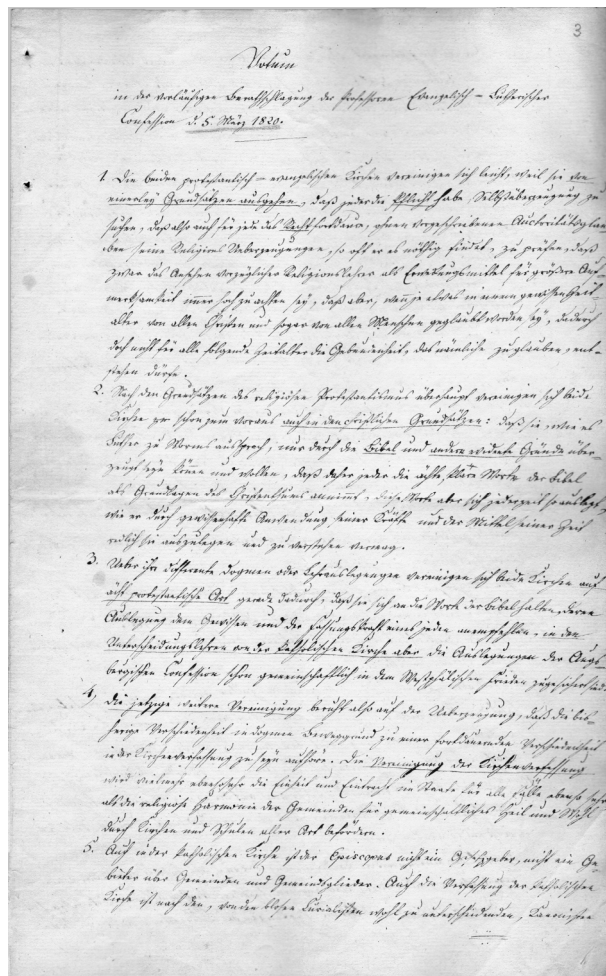 3
Votum
in der vorläufigen Berathschlagung der Professoren Evangelisch-Lutherischer
Confession d. 5. März 1820.
1. Die beiden protestantisch-evangelischen Kirchen vereinigen sich leicht, weil sie von
einerley Grundsätzen ausgehen, daß jeder die Pflicht habe, Selbstüberzeugung zu
suchen, daß also auch für jeden das Recht fortdaure, ohne vorgeschriebenen Auctoritätsglau
ben seine Religions Ueberzeugungen, so oft er es nöthig findet, zu prüfen, daß
zwar das Ansehen vorzüglicher Religionslehrer als Erweckungsmittel für größere Auf-
merksamkeit immer hoch zu achten sey, daß aber, wenn je etwas in irgend gewissen Zeit-
alter von allen Christen und sogar von allen Menschen geglaubt worden sey, dadurch
doch nicht für alle folgende Zeitalter die Gebundenheit, das nämliche zu glauben, ent-
stehen dürfe.
2. Nach den Grundsätzen des religiösen Protestantismus überhaupt vereinigen sich beide
Kirchen schon zum Voraus auch in den christlichen Grundsätzen: daß sie, wie es
Luther zu Worms aussprach, nur durch die Bibel und andere evidente Gründe über-
zeugt seyn können und wollen, daß daher jeder die ächte, klare Worte der Bibel
als Grundlagen des Christenthums annimmt, diese Worte aber sich jederzeit so auslegt,
wie er durch gewissenhafte Anwendung seiner Kräfte und der Mittel seiner Zeit
redlich sie auszulegen und zu verstehen vermag.
3. Ueber ihre differente Dogmen oder Lehrauslegungen vereinigen sich beide Kirchen auf
ächt protestantische Art gerade dadurch, daß sie sich an die Worte der Bibel halten, deren
Auslegung dem Gewissen und der Fassungskraft eines jeden anempfehlen, in den
Unterscheidungslehren von der katholischen Kirche aber die Auslegungen der Augs
burgischen Confession schon gemeinschaftlich in dem Westphälischen Frieden zugesichert sind.
4. Die jetzige weitere Vereinigung beruht also auf der Ueberzeugung, daß die bis-
herige Verschiedenheit in Dogmen Beweggrund zu einer fortdauernden Verschiedenheit
in der Kirchenverfassung zu seyn aufhöre. Die Vereinigung der Kirchenverfassung
wird vielmehr ebensosehr die Einheit und Eintracht im Staate für alle Fälle ebenso sehr
als die religiöse Harmonie der Gemeinden für gemeinschaftliches Heil und Wohl
durch Kirchen und Schulen aller Art befördern.
5. Auch in der katholischen Kirche ist der Episcopat nicht ein Gesetzgeber, nicht ein Ge-
bieter über Gemeinden und Gemeindsglieder. Auch die Verfassung der katholischen
Kirche ist nach den, von den blosen Curialisten wohl zu unterscheidenden,